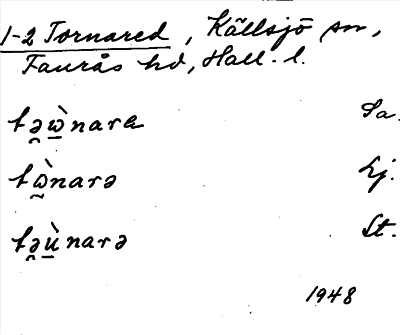 1-2 Tornared, Källsjö sn,
Faurås hd, Hall. l.
tə̯ὼ̲nara Sa.
tὼ̰narə Lj.
tə̯ù̲narə St.
1948